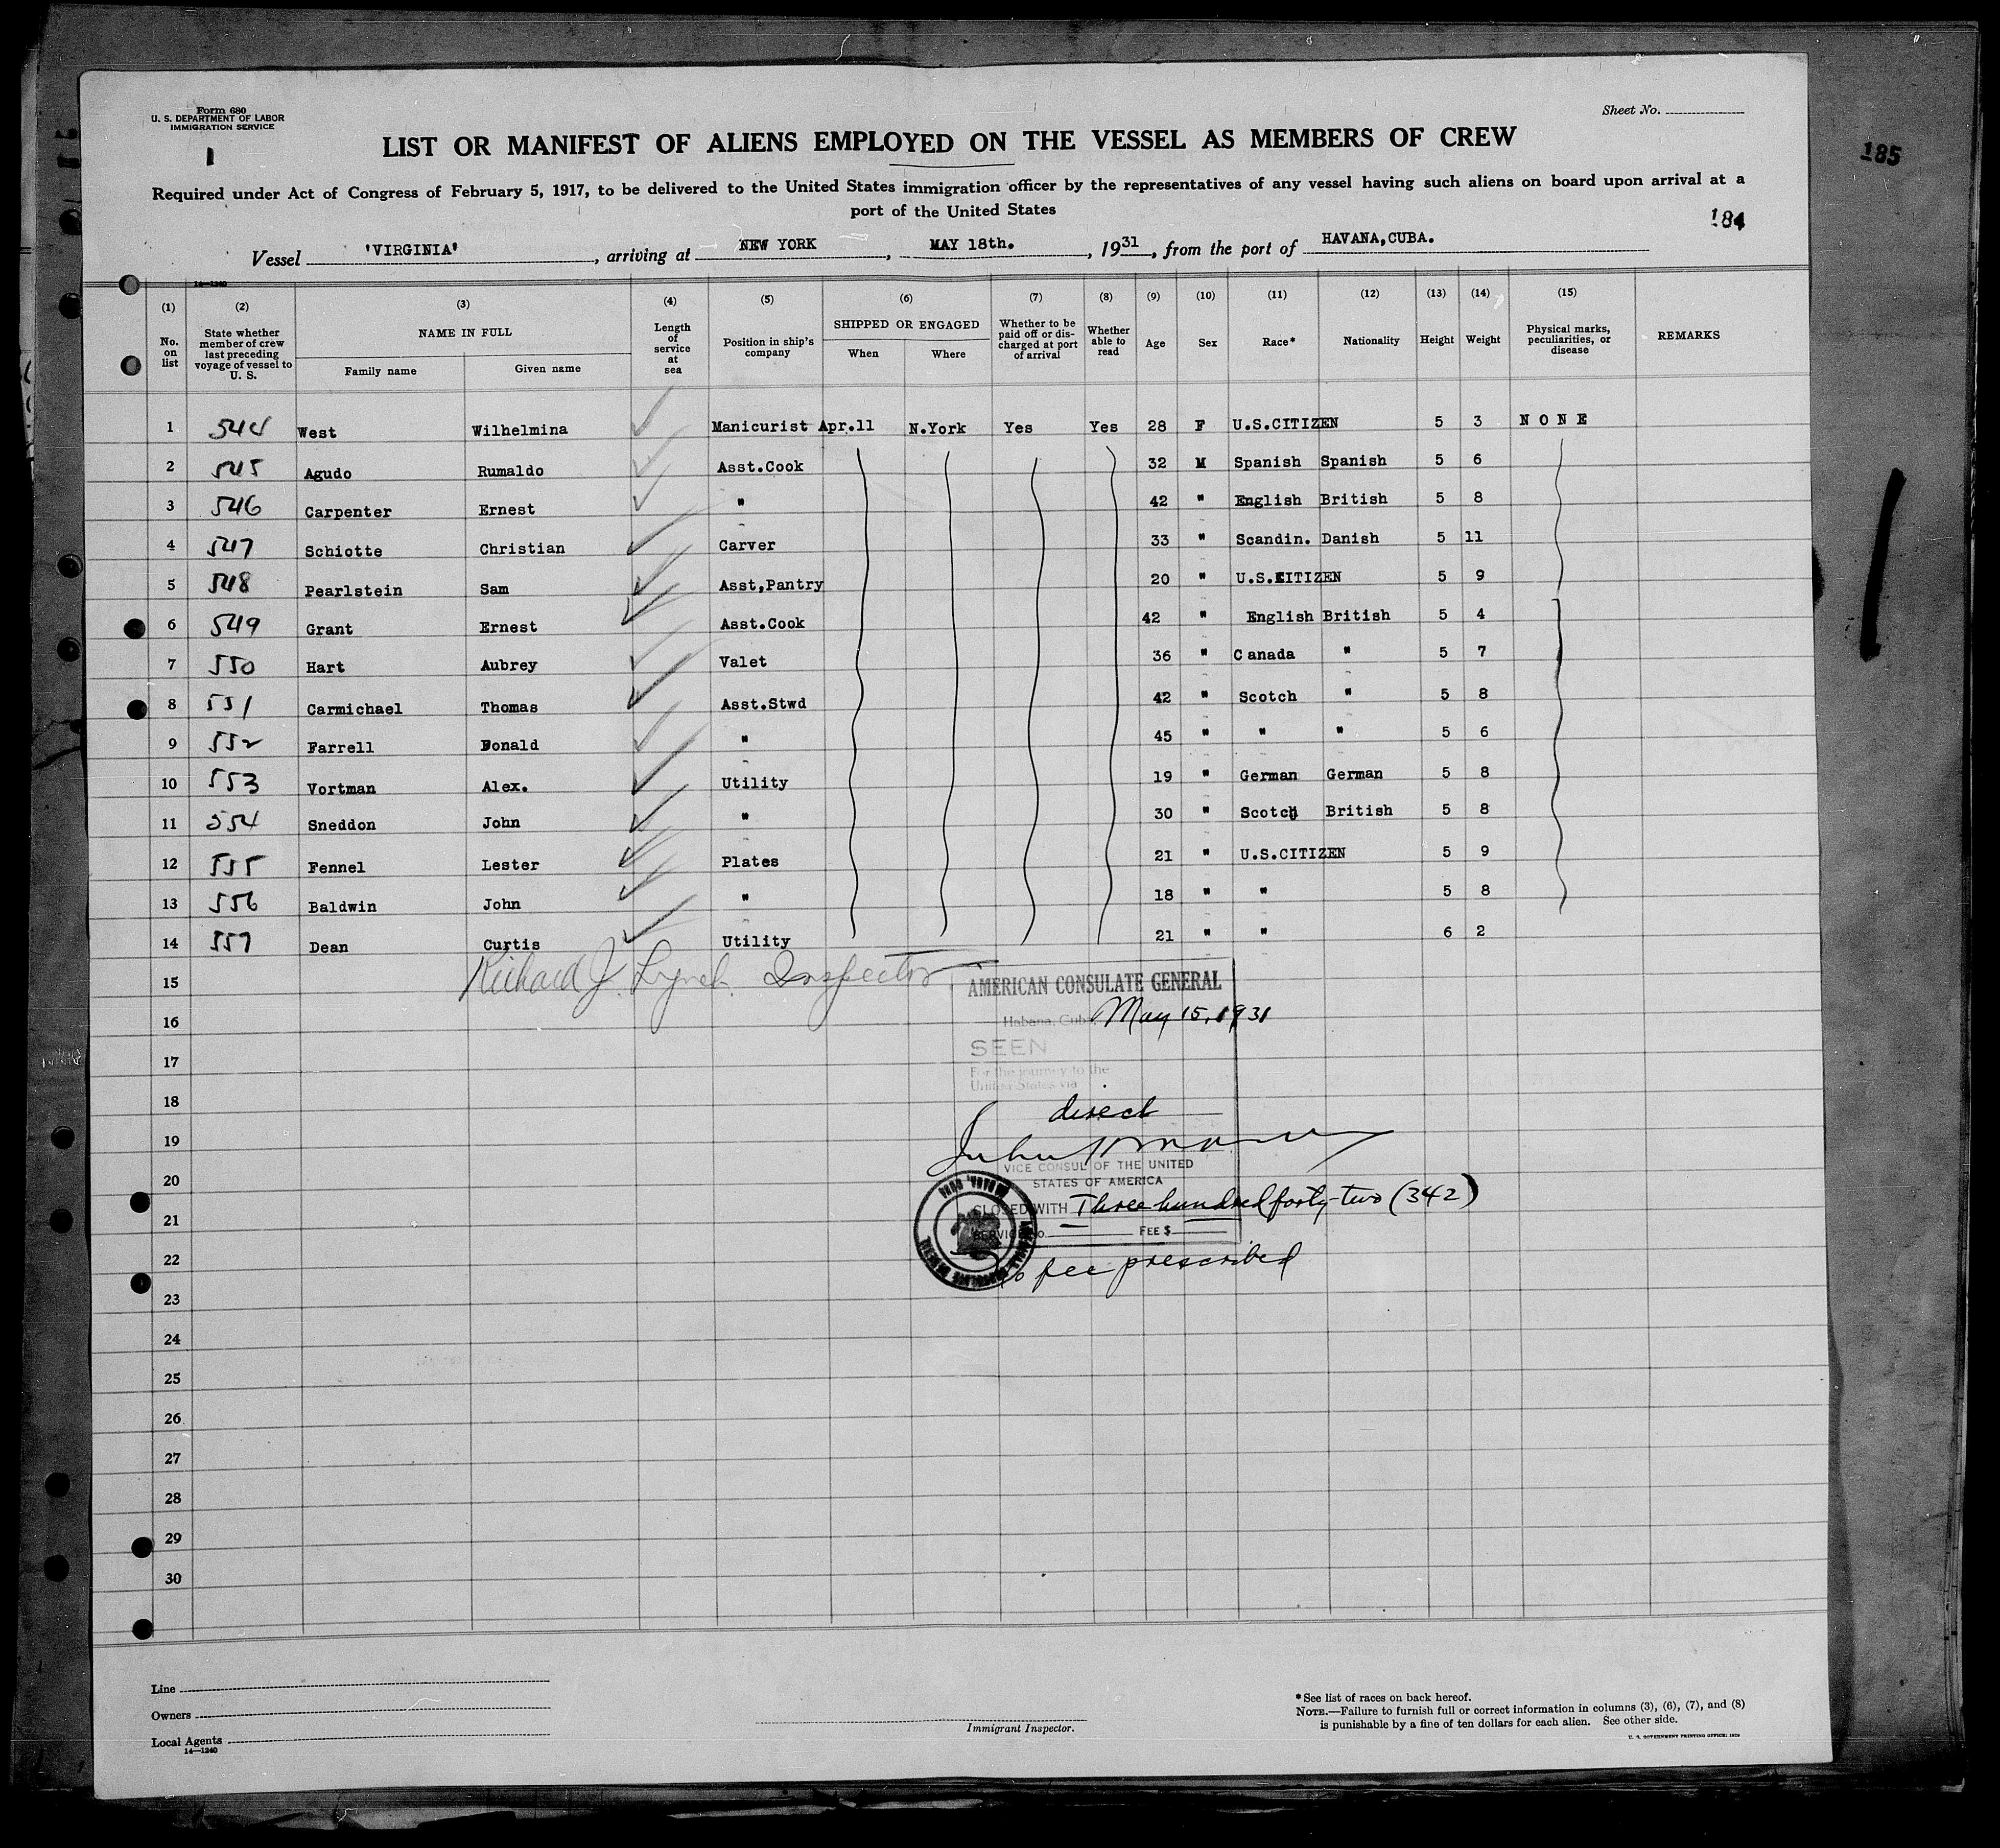 Form 680
U. S. DEPARTMENT OF LABOR
IMMIGRATION SERVICE
1
Sheet No.
LIST OR MANIFEST OF ALIENS EMPLOYED ON THE VESSEL AS MEMBERS OF CREW
185
Required under Act of Congress of February 5, 1917, to be delivered to the United States immigration officer by the representatives of any vessel having such aliens on board upon arrival at a
port of the United States
184
Vessel 'VIRGINIA', arriving at NEW YORK, MAY 18th., 1931, from the port of HAVANA,CUBA.
14—1240
(1) (2) (3) (4) (5) (6) (7) (8) (9) (10) (11) (12) (13) (14) (15)
No. on list State whether member of crew last preceding voyage of vessel to U. S. NAME IN FULL Family name Given name Length of service at sea Position in ship's company SHIPPED OR ENGAGED When Where Whether to be paid off or discharged at port of arrival Whether able to read Age Sex Race* Nationality Height Weight Physical marks, peculiarities, or disease REMARKS
1 544 West Wilhelmina Manicurist Apr.11 N.York Yes Yes 28 F U.S.CITIZEN 5 3 NONE
2 545 Agudo Rumaldo Asst.Cook 32 M Spanish Spanish 5 6
3 546 Carpenter Ernest " 42 " English British 5 8
4 547 Schiotte Christian Carver 33 " Scandin. Danish 5 11
5 548 Pearlstein Sam Asst,Pantry 20 " U.S.CITIZEN 5 9
6 549 Grant Ernest Asst.Cook 42 " English British 5 4
7 550 Hart Aubrey Valet 36 " Canada " 5 7
8 551 Carmichael Thomas Asst.Stwd 42 " Scotch " 5 8
9 552 Farrell Donald " 45 " " " 5 6
10 553 Vortman Alex. Utility 19 " German German 5 8
11 554 Sneddon John " 30 " Scotch British 5 8
12 555 Fennel Lester Plates 21 " U.S.CITIZEN 5 9
13 556 Baldwin John " 18 " " 5 8
14 557 Dean Curtis Utility 21 " " 6 2
Richard J. Lynch Inspector
15
AMERICAN CONSULATE GENERAL
16
Habana, Cuba May 15, 1931
SEEN
17
For the journey to the
United States via
18
direct
19
VICE CONSUL OF THE UNITED
20
STATES OF AMERICA
CLOSED WITH Three hundred forty-two (342)
21
SERVICE No. FEE $
22
No fee prescribed
23
24
25
26
27
28
29
30
Line
Owners
Local Agents
14—1240
Immigrant Inspector.
*See list of races on back hereof.
NOTE.—Failure to furnish full or correct information in columns (3), (6), (7), and (8)
is punishable by a fine of ten dollars for each alien. See other side.